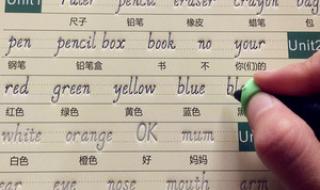 Unit1 ruler pencil eraser crayon bag
尺子 铅笔 橡皮 蜡笔 包
pen pencil box book no your Unit2
钢笔 铅笔盒 书 不 你(们)的
red green yellow blue
红色 绿色 黄色 蓝色 黑
white orange OK mum
白色 橙色 好 妈妈
ear eye nose mouth arm